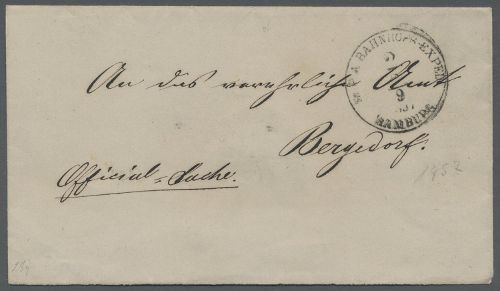 An das verehrliche Amt
Bergedorf.
Official-Sache.
St. P. A. BAHNHOFS-EXPED.
HAMBURG
9
1857